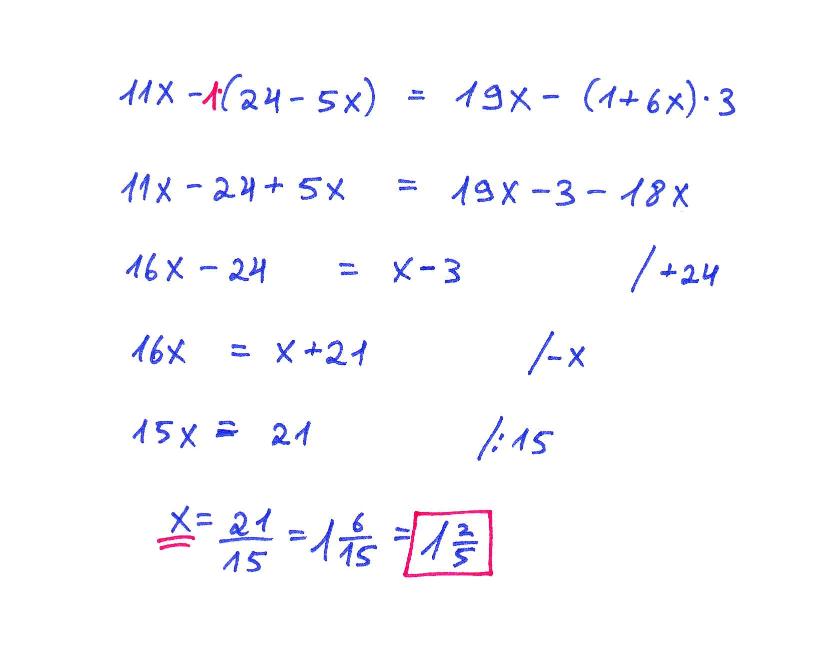 11x - 1·(24 - 5x) = 19x - (1 + 6x)·3
11x - 24 + 5x = 19x - 3 - 18x
16x - 24 = x - 3 / +24
16x = x + 21 / -x
15x = 21 / :15
x = 21/15 = 1 6/15 = 1 2/5